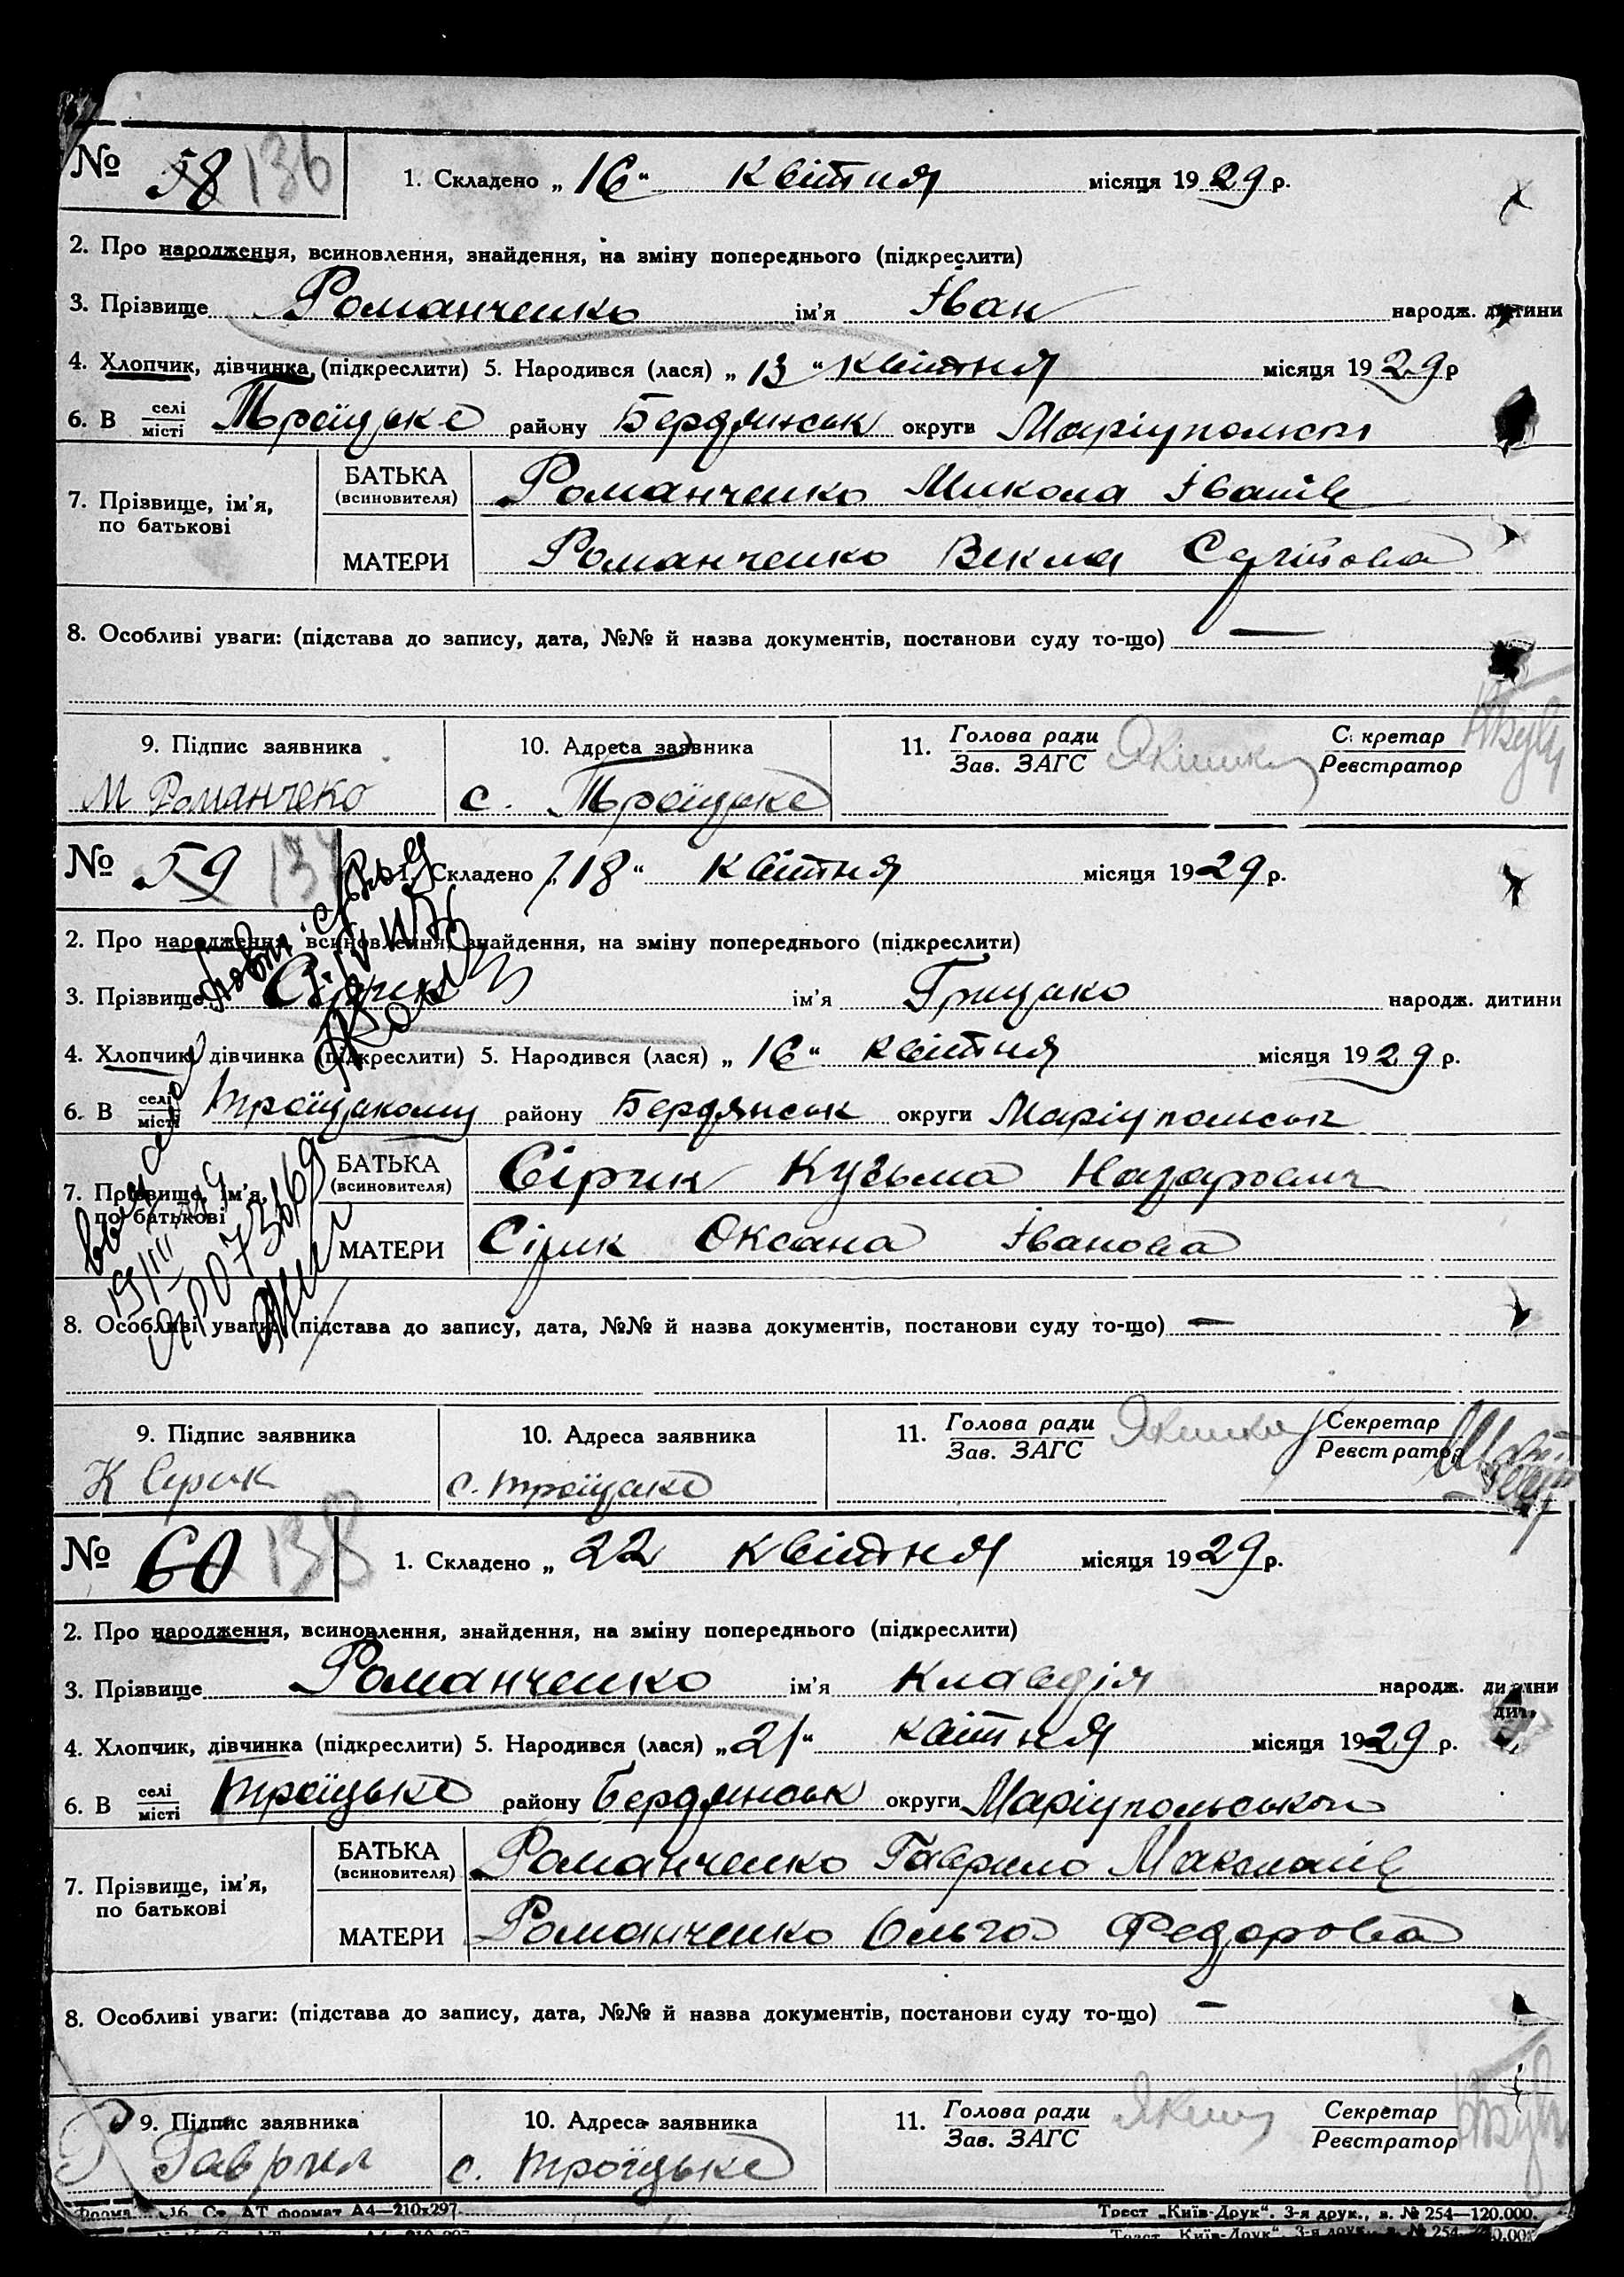 № 58 136 1. Складено „ 16 “ квітня місяця 1929 р.
2. Про народження, всиновлення, знайдення, на зміну попереднього (підкреслити)
3. Прізвище Романченко ім’я Іван народж. дитини
4. Хлопчик, дівчинка (підкреслити) 5. Народився (лася) „ 13 “ квітня місяця 1929 р
6. В селі місті Троїцьке району Бердянськ округи
7. Прізвище, ім’я, по батькові
БАТЬКА (всиновителя) Романченко Микола Іванів
МАТЕРИ Романченко Векла
8. Особливі уваги: (підстава до запису, дата, №№ й назва документів, постанови суду то-що) —
9. Підпис заявника 10. Адреса заявника 11. Голова ради Зав. ЗАГС Секретар Реєстратор
М Романчеко с. Троїцьке
№ 59 137 1. Складено „ 18 “ квітня місяця 1929 р.
2. Про народження, всиновлення, знайдення, на зміну попереднього (підкреслити)
3. Прізвище Сірик ім’я Грицько народж. дитини
4. Хлопчик, дівчинка (підкреслити) 5. Народився (лася) „ 16 “ квітня місяця 1929 р.
6. В селі місті Троїцькому району Бердянськ округи Маріупольськ
7. Прізвище, ім’я, по батькові
БАТЬКА (всиновителя) Сірик Кузьма Назарович
МАТЕРИ Сірик Оксана Іванова
8. Особливі уваги: (підстава до запису, дата, №№ й назва документів, постанови суду то-що) —
9. Підпис заявника 10. Адреса заявника 11. Голова ради Зав. ЗАГС Секретар Реєстратор
К Сірик с. Троїцьке
№ 60 138 1. Складено „ 22 квітня місяця 1929 р.
2. Про народження, всиновлення, знайдення, на зміну попереднього (підкреслити)
3. Прізвище Романченко ім’я Клавдія народж. дитини
4. Хлопчик, дівчинка (підкреслити) 5. Народився (лася) „ 21 “ квітня місяця 1929 р.
6. В селі місті Троїцьке району Бердянськ округи Маріупольської
7. Прізвище, ім’я, по батькові
БАТЬКА (всиновителя) Романченко Гаврило
МАТЕРИ Романченко Ольга Федорова
8. Особливі уваги: (підстава до запису, дата, №№ й назва документів, постанови суду то-що) —
9. Підпис заявника 10. Адреса заявника 11. Голова ради Зав. ЗАГС Секретар Реєстратор
Р Гаврил с. Троїцьке
Форма 16 Ст. АТ формат А4—210х297. Трест „Київ-Друк“. 3-я друк., з. № 254—120.000.